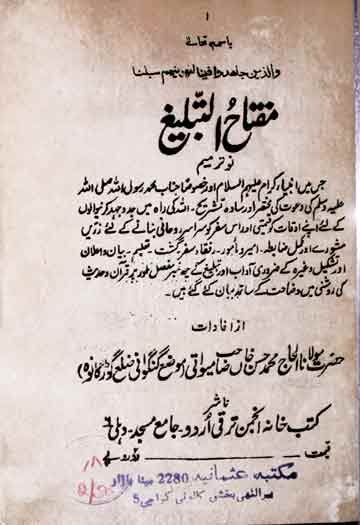 ۱
باسمہ تعالےٰ
والذین جاھدوا فینا لنھدینھم سبلنا
مفتاحُ التبلیغ
نو ترمیم
جس میں انبیاء کرام علیہم السلام اور خصوصًا جناب محمد رسول اللہ صلی اللہ
علیہ وسلم کی دعوت کی مختصر اور سادہ تشریح۔ اللہ کی راہ میں جدوجہد کرنیوالوں
کے لئے اپنے اوقات کو قیمتی اور اس سفر کو سراسر روحانی بنانے کے لئے زریں
مشورے اور مکمل ضابطہ۔ امیر و مامور۔ رفقاء سفر، گشت۔ تعلیم۔ بیان و اعلان
اور تشکیل وغیرہ کے ضروری آداب اور تبلیغ کے چھ نمبر مفصل طور پر قرآن و حدیث
کی روشنی میں وضاحت کے ساتھ بیان کئے گئے ہیں۔
از افادات
حضرت مولانا الحاج محمد حسن خاں صاحب میواتی (موضع گنگوانی ضلع گوڑگانوہ)
ناشر
کتب خانہ انجمن ترقی اُردو۔ جامع مسجد۔ دہلی ۶
قیمت روپے
مکتبہ عثمانیہ 2280 مینا بازار
پیر الٰہی بخش کالونی کراچی 5